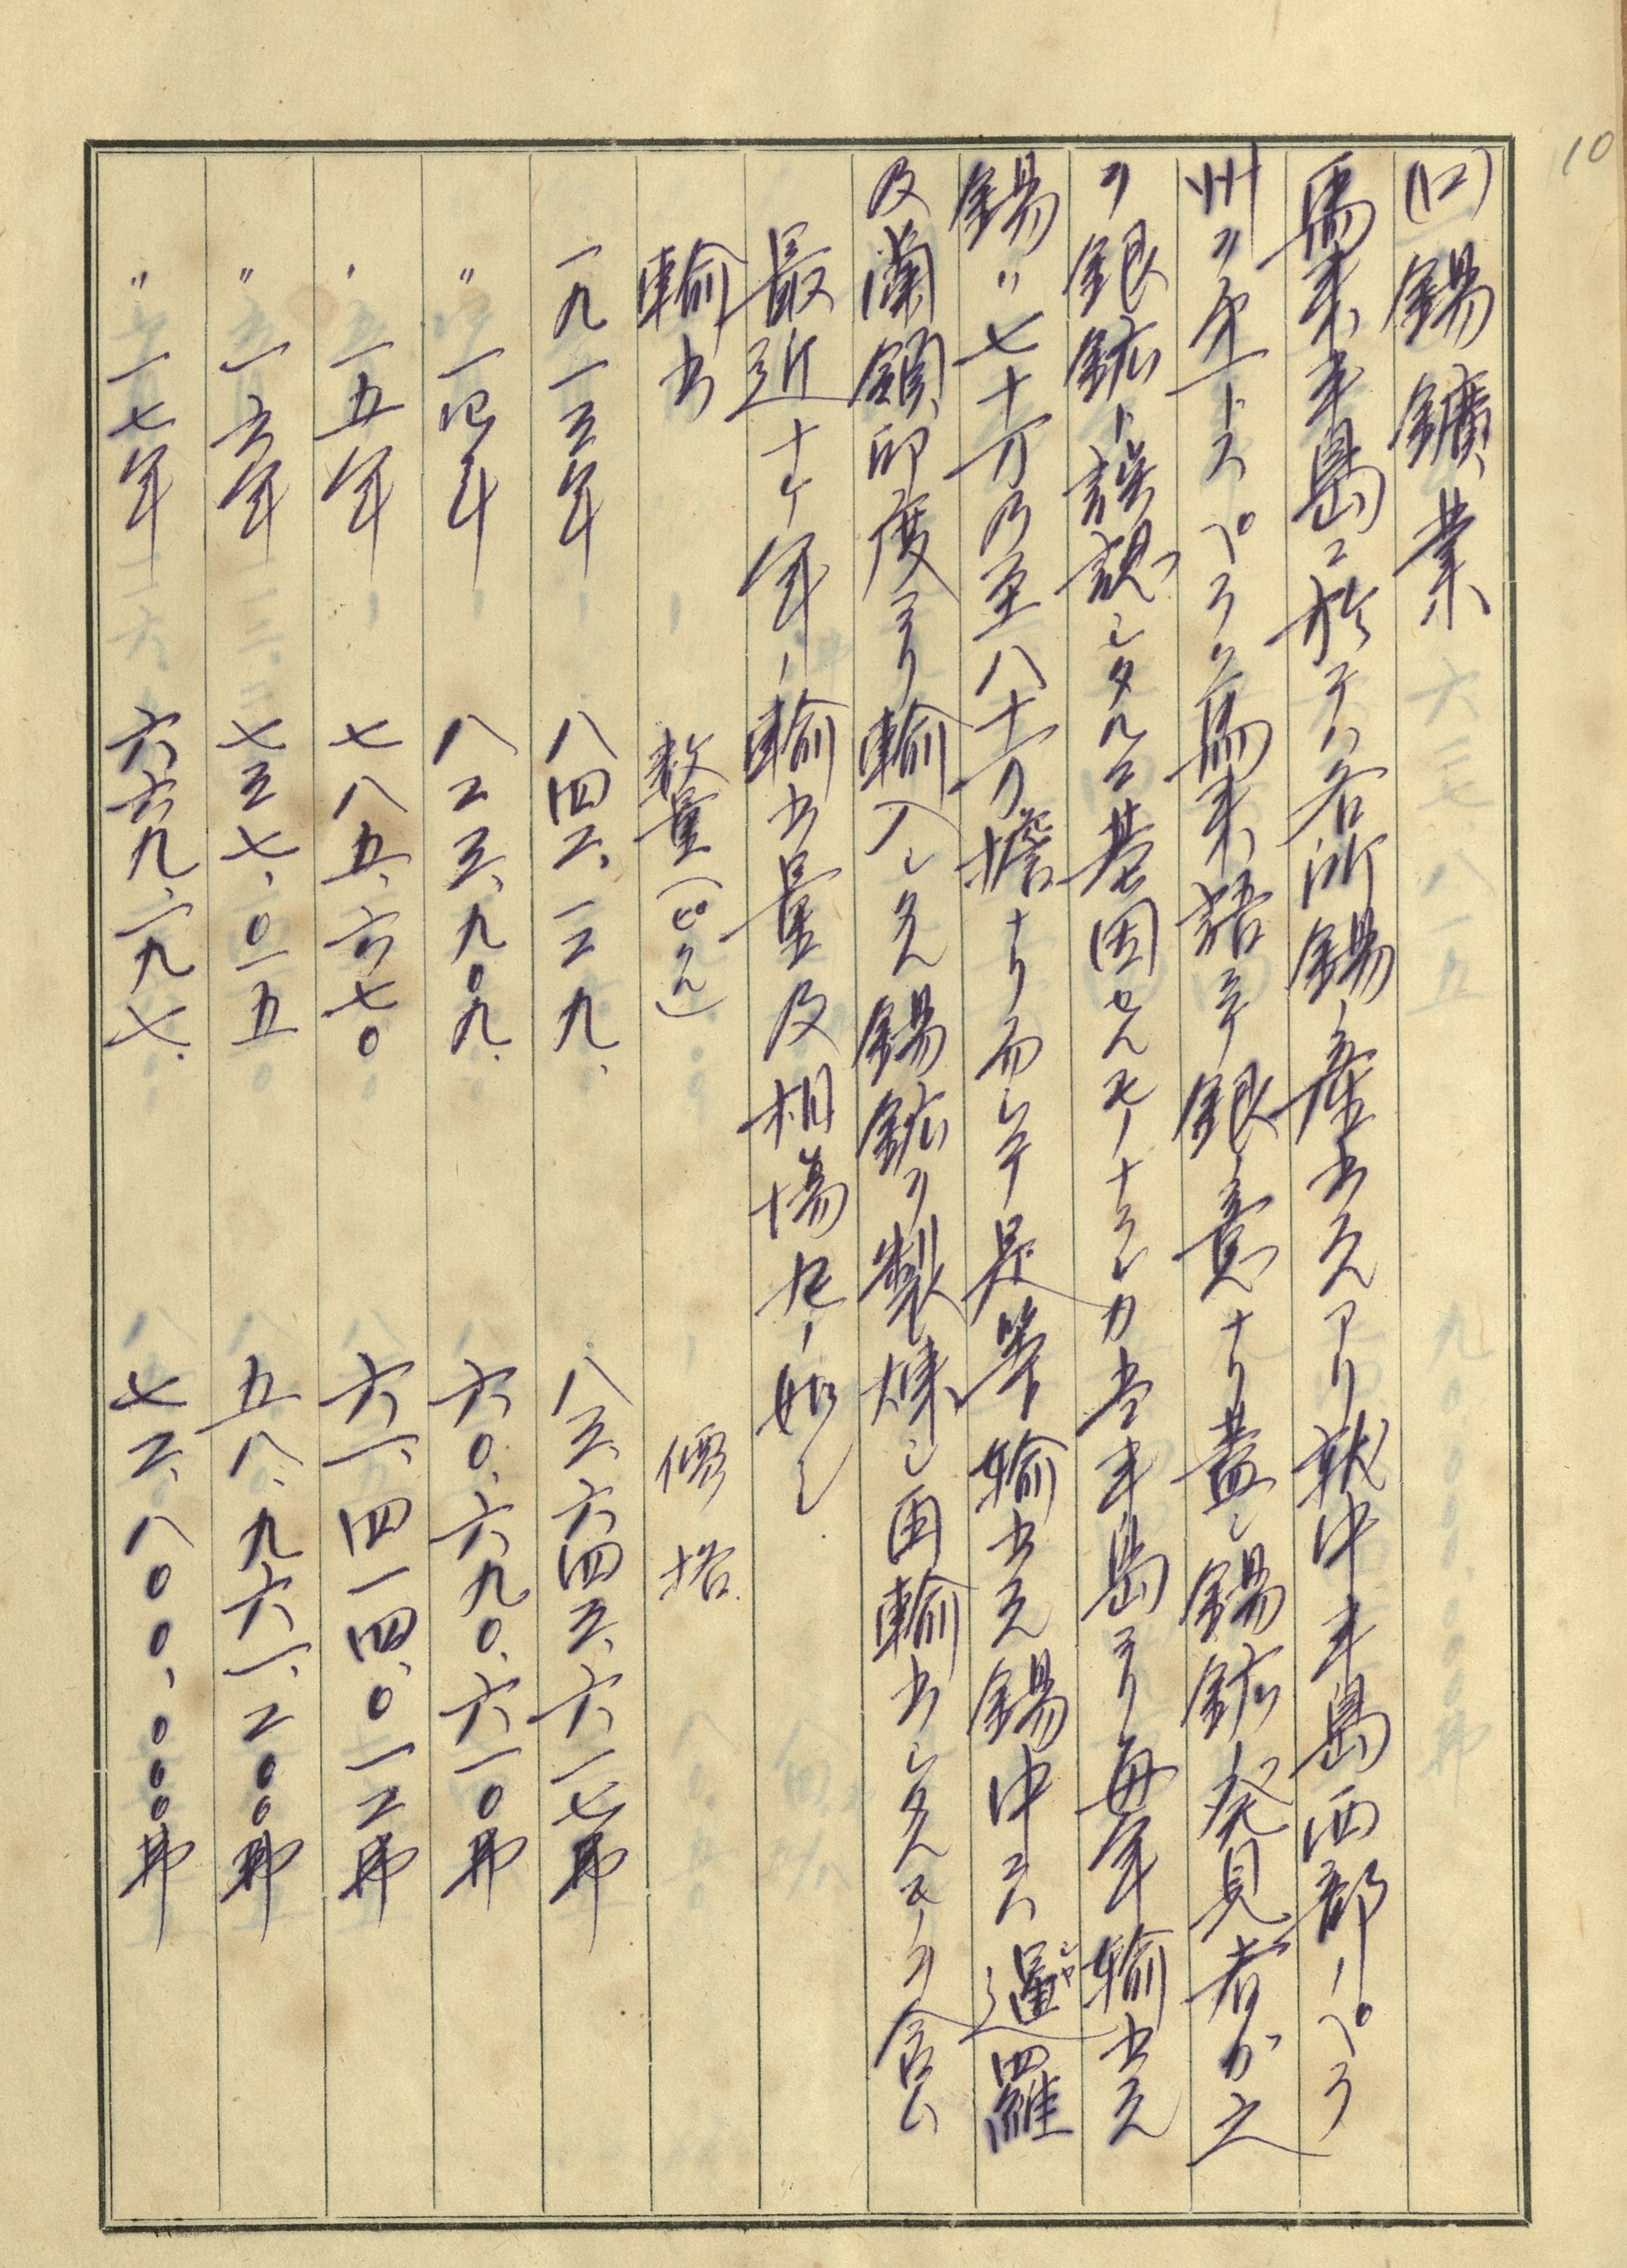 10
(ロ)錫鑛業
馬来半島ニ於テハ各所錫ノ産出スルアリ就中半島西部ノペラ
州ヲ第一トスペラトハ馬来語ニテ銀ノ意ナリ蓋シ錫鉱発見者ガ之
ヲ銀鉱ト誤認シタルニ基因セルモノナラン乎当半島ヨリ毎年輸出スル
錫ハ七十万乃至八十万擔ナリ而シテ是等輸出スル錫中ニハ暹羅
シヤ
及蘭領印度ヨリ輸入シタル錫鉱ヲ製煉シ再輸出シタルモノヲ含ム
最近十ケ年ノ輸出量及相場左ノ如シ
輸出 数量(ピクル) 價格
一九一三年 八四二、一二九、 八三、六四三、六一七弗
〃一四年 八二三、九〇九、 六〇、六九〇、六一〇弗
〃一五年 七八五、六七〇 六一、四一四、〇一二弗
〃一六年 七三七、〇一五 五八、九六一、二〇〇弗
〃一七年 六六九、二九七、 七二、八〇〇、〇〇〇弗